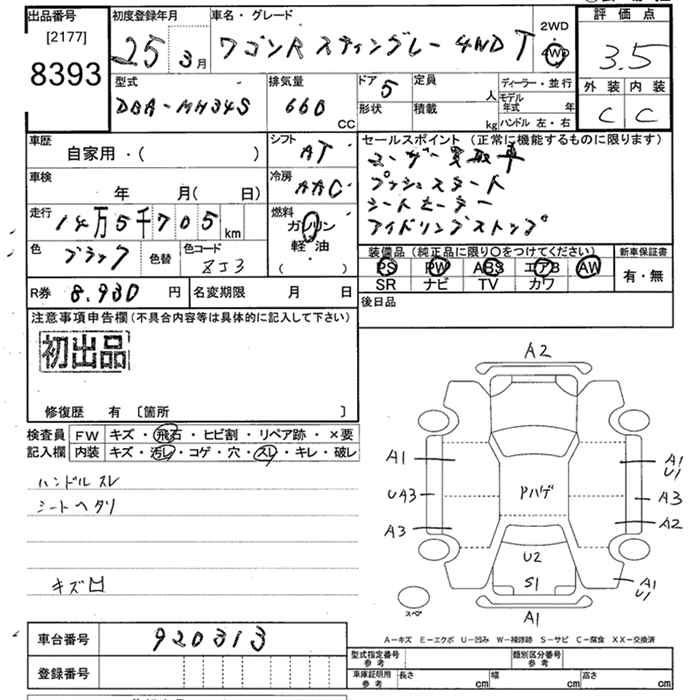 出品番号
[2177]
8393
初度登録年月
25 3月
車名・グレード
ワゴンR スティングレー 4WD T
2WD
4WD
評価点
3.5
外装 内装
C C
型式
DBA-MH34S
排気量
660
CC
ドア 5
形状
定員
人
積載
kg
ディーラー・並行
モデル年式 年
ハンドル 左・右
車歴
自家用・( )
シフト
AT
車検
年 月( 日)
冷房
AAC
走行
14万5千705 km
燃料
ガソリン
軽・油
( )
色
ブラック
色替
色コード
ZJ3
R券 8,930 円
名変期限 月 日
セールスポイント (正常に機能するものに限ります)
ユーザー買取車
プッシュスタート
シートヒーター
アイドリングストップ
装備品(純正品に限り○をつけてください)
PS PW ABS エアB AW
SR ナビ TV カワ
新車保証書
有・無
後日品
注意事項申告欄(不具合内容等は具体的に記入して下さい)
初出品
修復歴 有 〔箇所 〕
検査員記入欄
FW キズ・飛石・ヒビ割・リペア跡・×要
内装 キズ・汚レ・コゲ・穴・スレ・キレ・破レ
ハンドルスレ
シートヘタリ
キズ凹
A2
A1
A1
U1
UA3
Pハゲ
A3
A3
A2
U2
S1
A1
U1
スペア
A1
A-キズ E-エクボ U-凹み W-補修跡 S-サビ C-腐食 XX-交換済
車台番号 920313
登録番号
型式指定番号
参考
類別区分番号
参考
車庫証明用
参考
長さ cm
幅 cm
高さ cm